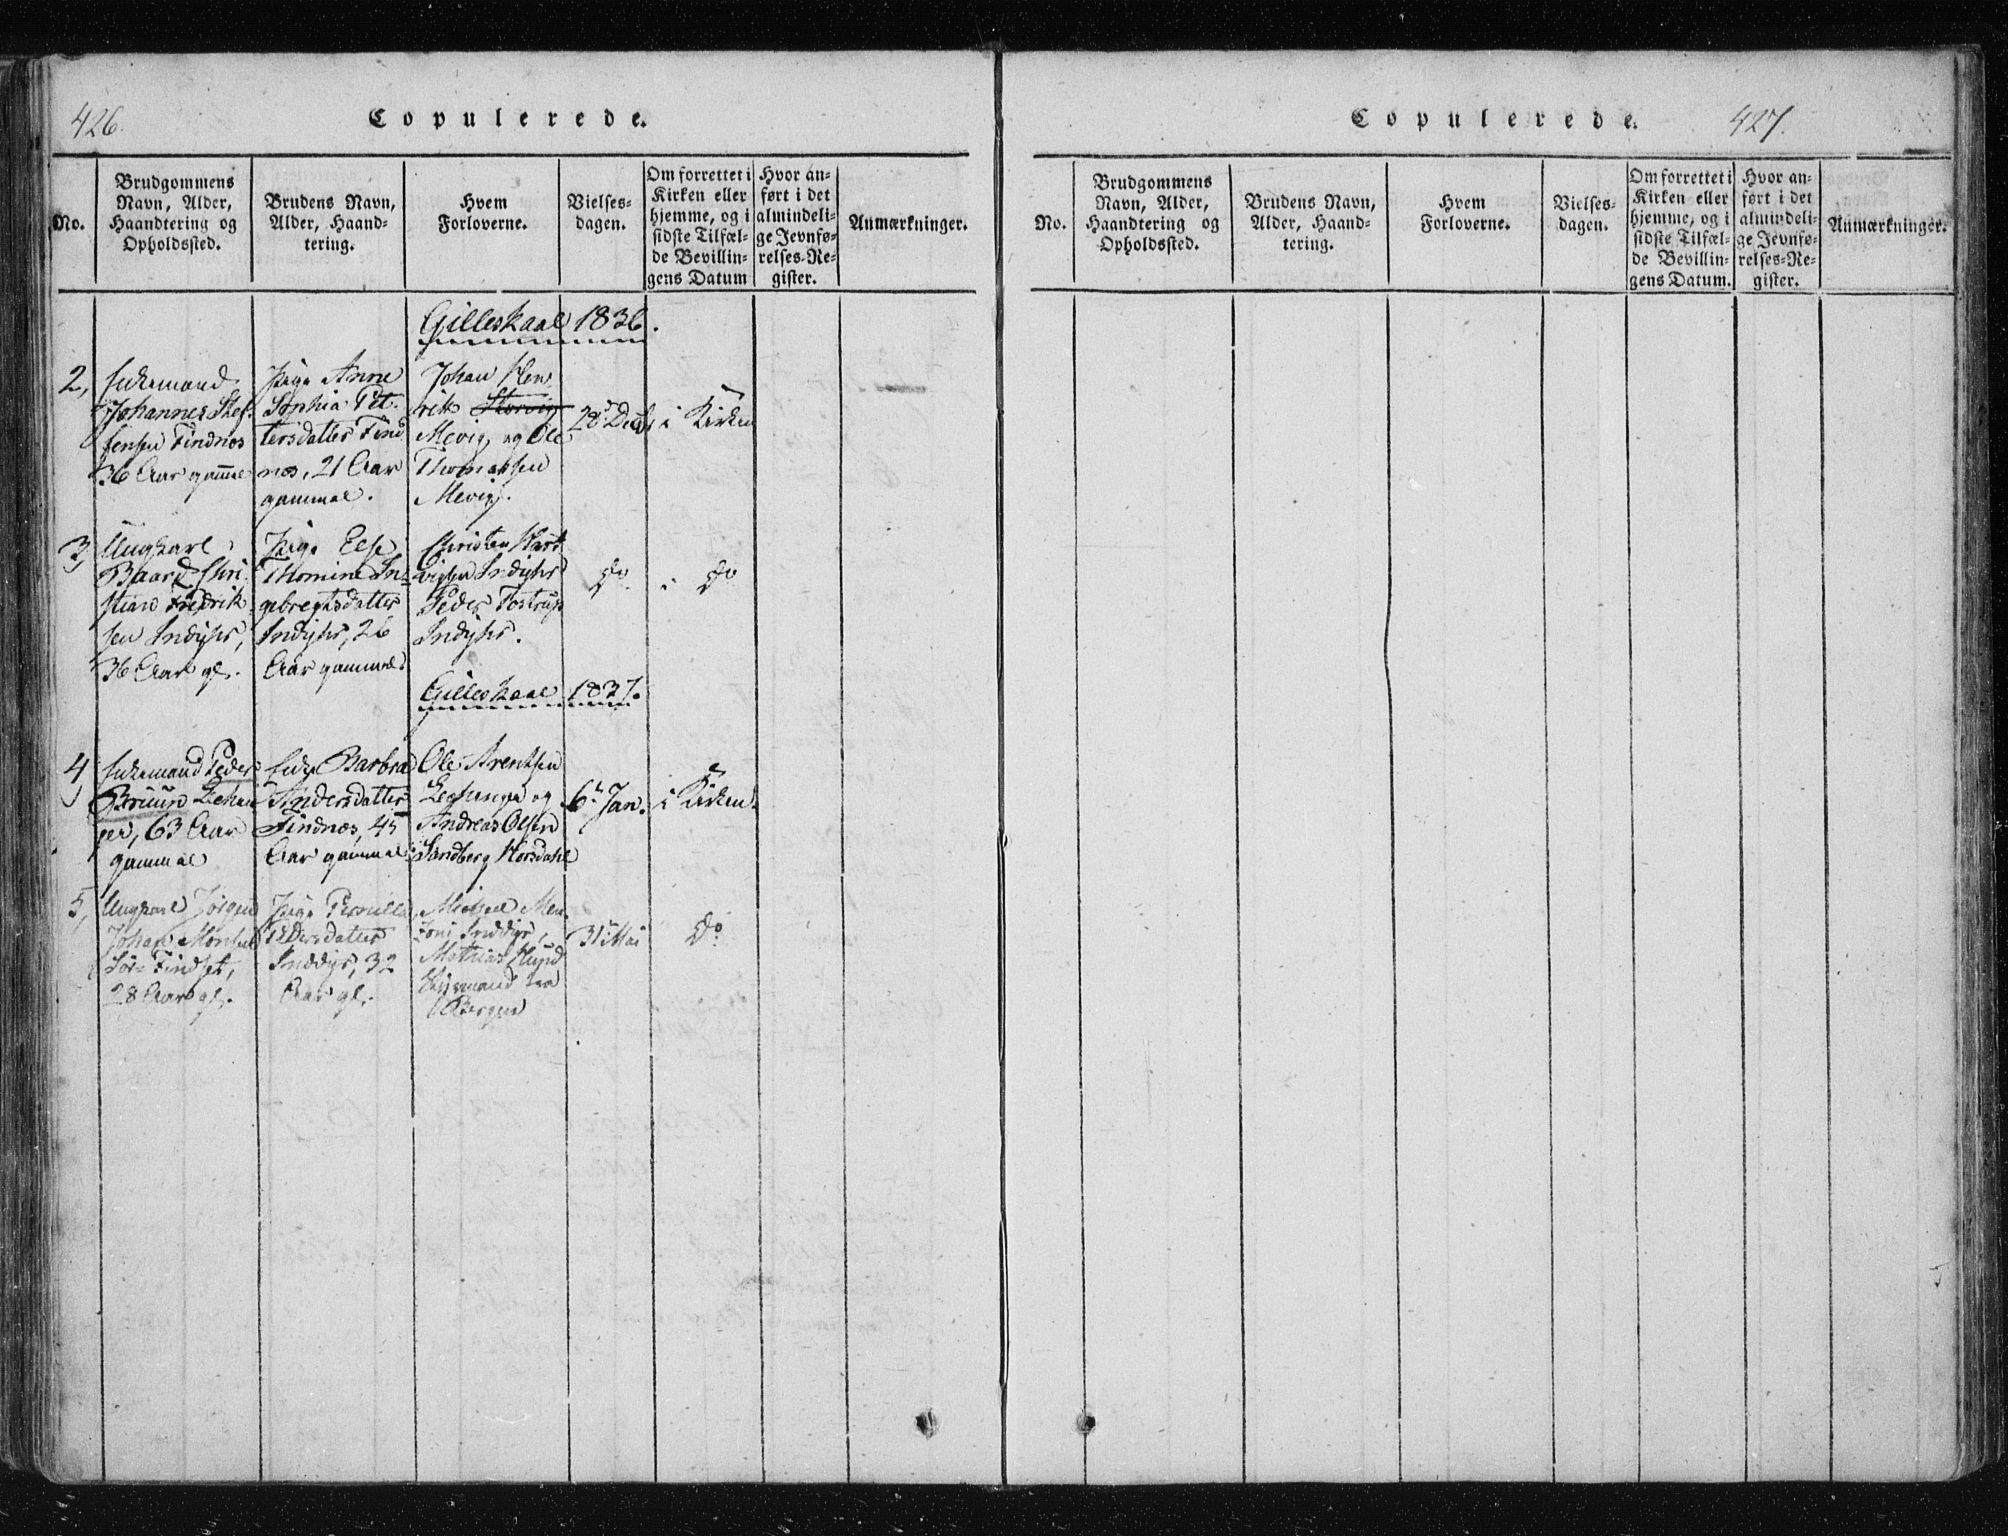 426.
Copulerede.
No.
Brudgommens
Navn, Alder,
Haandtering og
Opholdssted.
Brudens Navn,
Alder, Haand-
tering.
Hvem
Forloverne.
Vielses-
dagen.
Om forrettet i
Kirken eller
hjemme, og i
sidste Tilfæl-
de Bevillin-
gens Datum
Hvor an-
ført i det
almindeli-
ge Jevnfø-
relses-Re-
gister.
Anmærkninger.
Gilleskaal 1836.
2,
Enkemand
Johannes Stef-
fensen Findnes
36 Aar gammel
Pige Anne
Sophia Pet-
tersdatter Find
nes, 21 Aar
gammel.
Johan Hen
rik Storvig
Mevig og Ole
Thomassen
Mevig.
28 Decbr
i Kirken
3,
Ungkarl
Baard Chri-
stian Fredrik-
sen Indyhr,
36 Aar gl.
Pige Else
Thomine In-
gebregtsdatter
Indyhr, 26
Aar gammel
Christen Hart
vigsen Indyhr
Peder Tostrup
Indyhr.
Do
i Do
Gilleskaal 1837.
4,
Enkemand Peder
Bruun
63 Aar
gammel
Enke Barbra
Andersdatter
Findnes, 45
Aar gammel
Ole Arentsen
og
Andreas Olsen
Sandberg Horsdahl
6te Jan.
i Kirken.
5,
Ungkarl Jørgen
Johan
Sør-Findset,
28 Aar gl.
Pige Pernilla
Pedersdatter
Inddyr, 32
Aar gl.
Michael Men
Inddyr,
Mathias Hund
fra
Bergen
31 Mai
Do
Copulerede.
427.
No.
Brudgommens
Navn, Alder,
Haandtering og
Opholdssted.
Brudens Navn,
Alder, Haand-
tering.
Hvem
Forloverne.
Vielses-
dagen.
Om forrettet i
Kirken eller
hjemme, og i
sidste Tilfæl-
de Bevillin-
gens Datum.
Hvor an-
ført i det
almindeli-
ge Jevnfø-
relses-Re-
gister.
Anmærkninger.